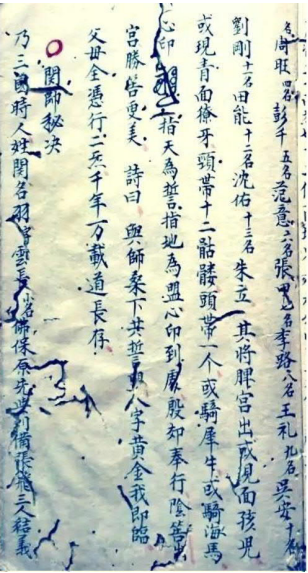 名周旺四名彭千五名范意六名張　七名李路八名王礼九名吳安十名
劉剛十一名田能十二名沈佑十三名朱立其將脾宮出或現面孩児
或現青面獠牙頭帶十二骷髏頭帶一个或騎犀牛或騎海馬
心印　指天為誓指地為盟心印到處殷却奉行陰
宮勝筶更美詩曰與師桑下共誓　八字黃金我即臨
父母全憑行二炁千年万載道長存
関師秘决
乃三國時人姓関名羽字雲長小名佛保原先與刘備張飛三人結義